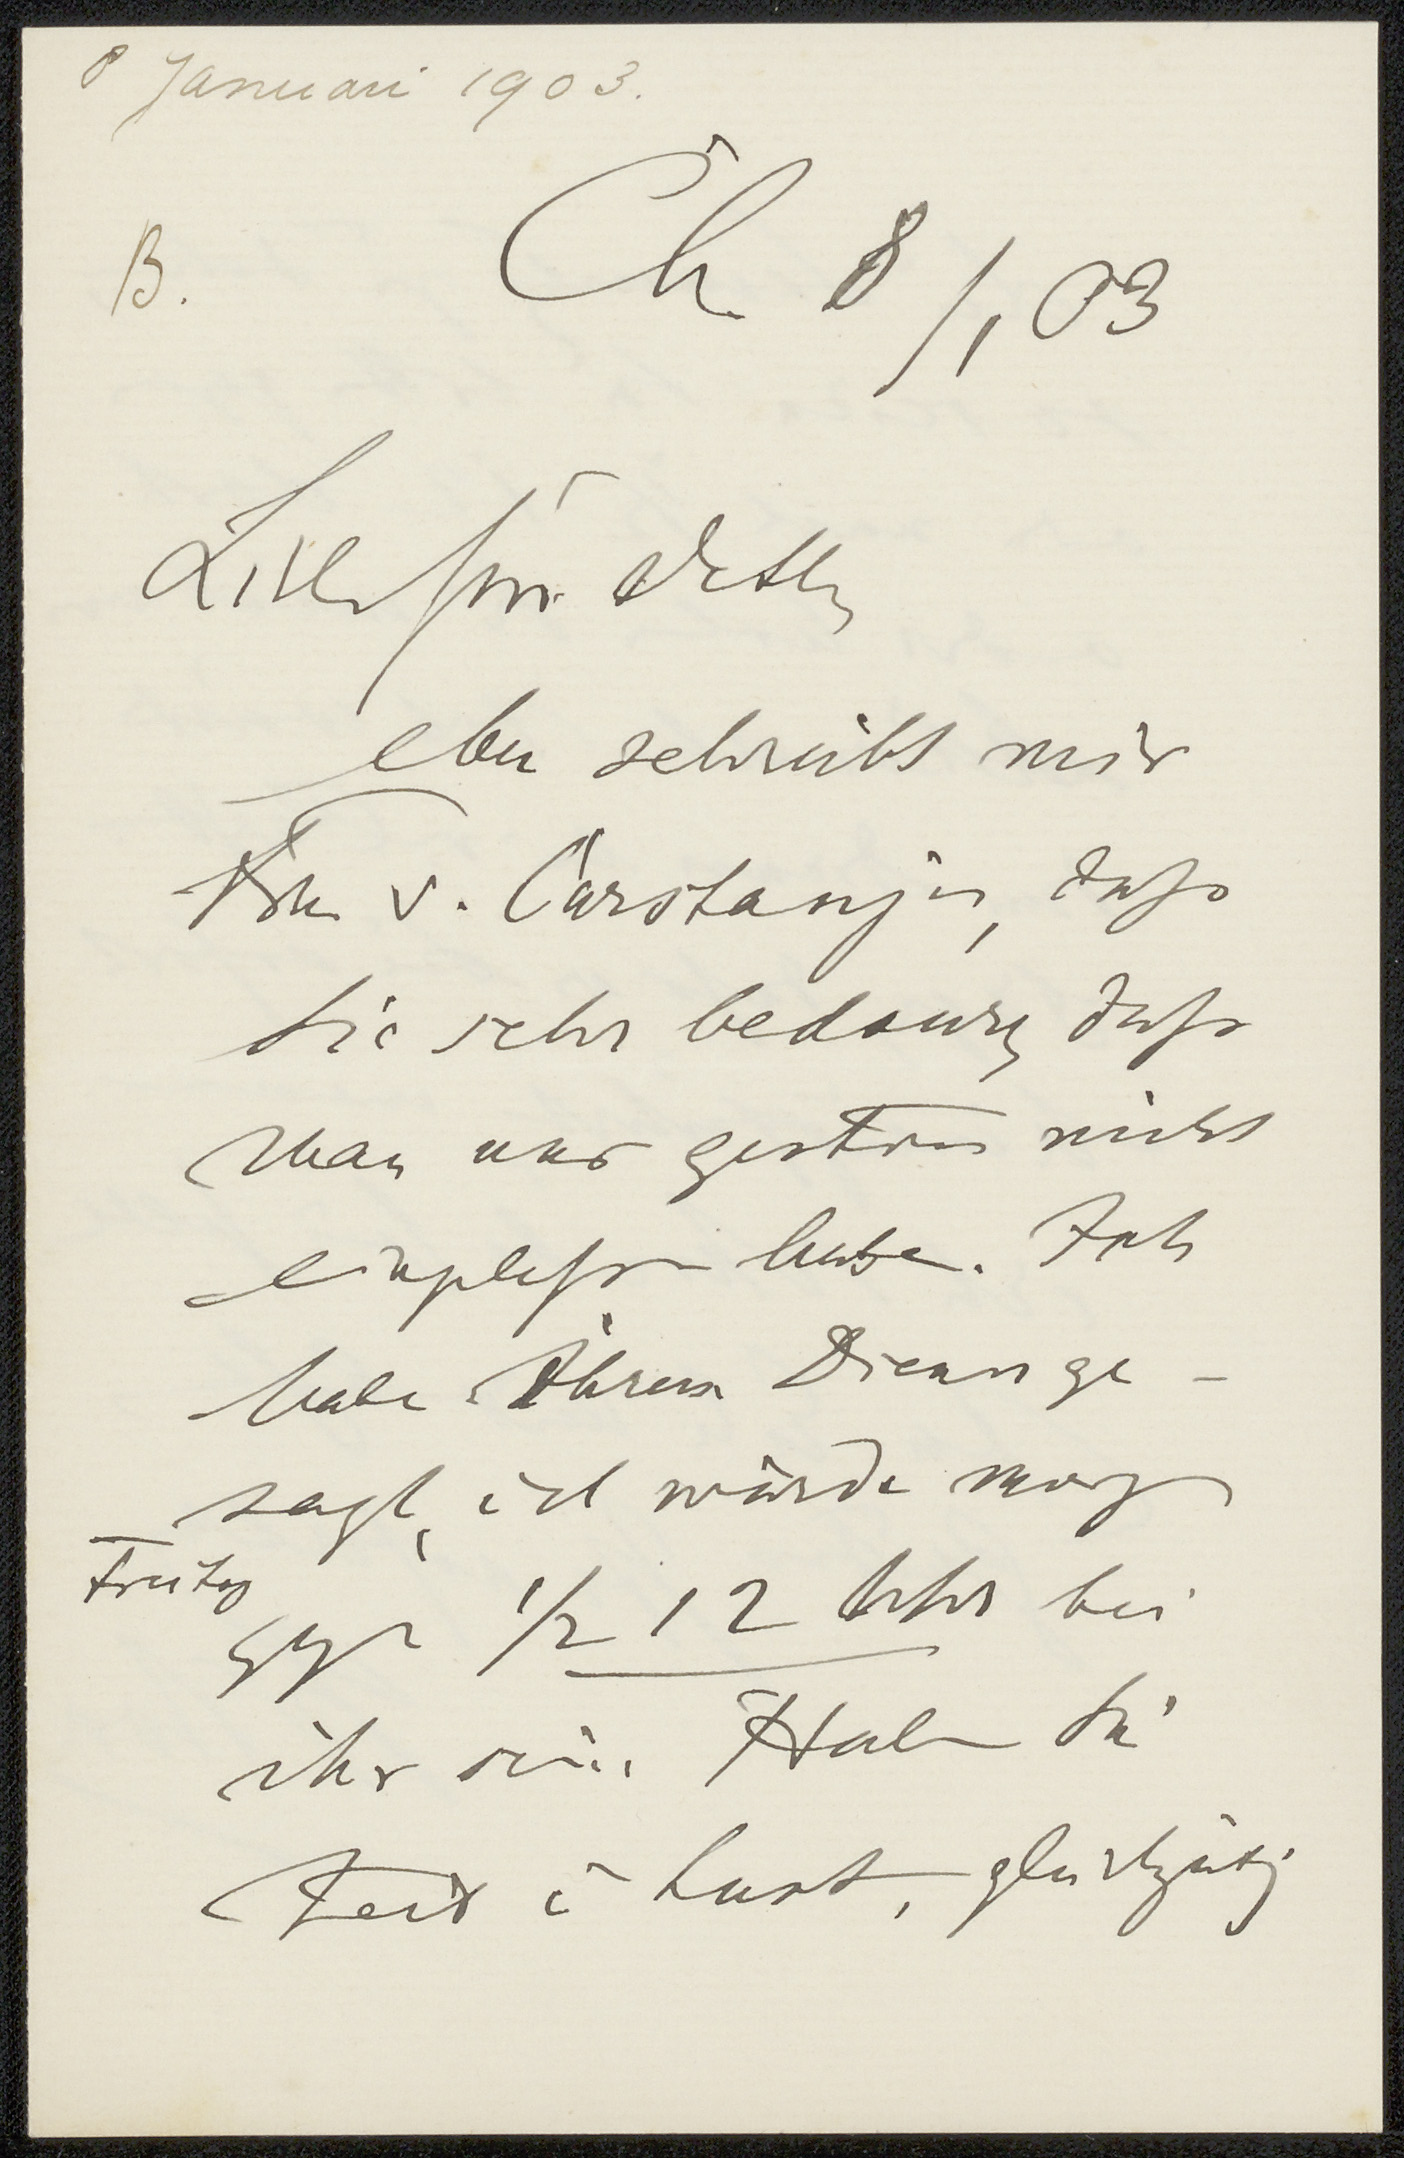 8 Januari 1903.
B.
Ch. 8/1 03
Lieber Herr Veth,
eben schreibt mir
Frau v. Carstanjen, dass
sie sehr bedaure, dass
man uns gestern nicht
eingelassen habe. Ich
habe Ihrem Diener ge-
sagt, ich würde morgen
Freitag
gegen 1/2 12 Uhr bei
ihr sein. Haben Sie
Zeit u Lust, gleichzeitig